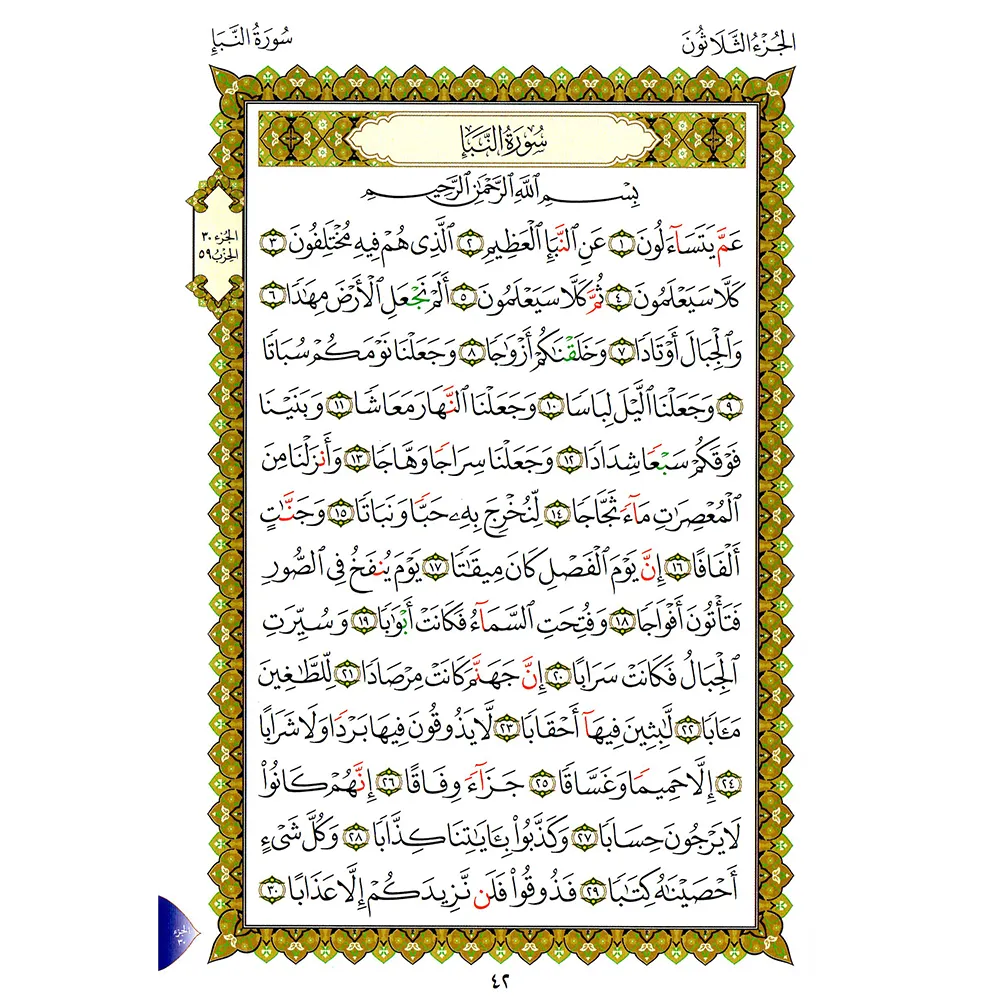 الجُزْءُ الثَّلَاثُونَ
سُورَةُ النَّبَإِ
سُورَةُ النَّبَإِ
بِسْمِ ٱللَّهِ ٱلرَّحْمَٰنِ ٱلرَّحِيمِ
الجزء ٣٠
الحزب ٥٩
عَمَّ يَتَسَآءَلُونَ ١ عَنِ ٱلنَّبَإِ ٱلْعَظِيمِ ٢ ٱلَّذِى هُمْ فِيهِ مُخْتَلِفُونَ ٣
كَلَّا سَيَعْلَمُونَ ٤ ثُمَّ كَلَّا سَيَعْلَمُونَ ٥ أَلَمْ نَجْعَلِ ٱلْأَرْضَ مِهَٰدًا ٦
وَٱلْجِبَالَ أَوْتَادًا ٧ وَخَلَقْنَٰكُمْ أَزْوَٰجًا ٨ وَجَعَلْنَا نَوْمَكُمْ سُبَاتًا
٩ وَجَعَلْنَا ٱلَّيْلَ لِبَاسًا ١٠ وَجَعَلْنَا ٱلنَّهَارَ مَعَاشًا ١١ وَبَنَيْنَا
فَوْقَكُمْ سَبْعًا شِدَادًا ١٢ وَجَعَلْنَا سِرَاجًا وَهَّاجًا ١٣ وَأَنزَلْنَا مِنَ
ٱلْمُعْصِرَٰتِ مَآءً ثَجَّاجًا ١٤ لِّنُخْرِجَ بِهِۦ حَبًّا وَنَبَاتًا ١٥ وَجَنَّٰتٍ
أَلْفَافًا ١٦ إِنَّ يَوْمَ ٱلْفَصْلِ كَانَ مِيقَٰتًا ١٧ يَوْمَ يُنفَخُ فِى ٱلصُّورِ
فَتَأْتُونَ أَفْوَاجًا ١٨ وَفُتِحَتِ ٱلسَّمَآءُ فَكَانَتْ أَبْوَٰبًا ١٩ وَسُيِّرَتِ
ٱلْجِبَالُ فَكَانَتْ سَرَابًا ٢٠ إِنَّ جَهَنَّمَ كَانَتْ مِرْصَادًا ٢١ لِّلطَّٰغِينَ
مَـَٔابًا ٢٢ لَّٰبِثِينَ فِيهَآ أَحْقَابًا ٢٣ لَّا يَذُوقُونَ فِيهَا بَرْدًا وَلَا شَرَابًا
٢٤ إِلَّا حَمِيمًا وَغَسَّاقًا ٢٥ جَزَآءً وِفَاقًا ٢٦ إِنَّهُمْ كَانُوا۟
لَا يَرْجُونَ حِسَابًا ٢٧ وَكَذَّبُوا۟ بِـَٔايَٰتِنَا كِذَّابًا ٢٨ وَكُلَّ شَىْءٍ
أَحْصَيْنَٰهُ كِتَٰبًا ٢٩ فَذُوقُوا۟ فَلَن نَّزِيدَكُمْ إِلَّا عَذَابًا ٣٠
الجزء
٣٠
٤٢